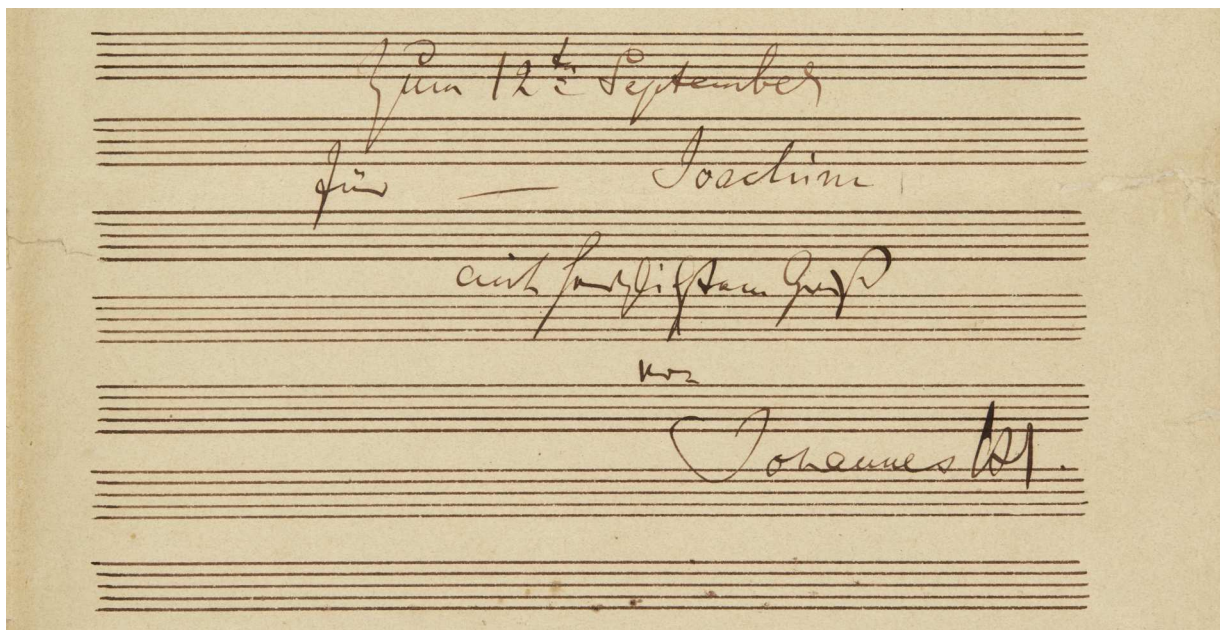 Zum 12ten September
für — Joachim
mit herzlichstem Gruß
von
Johannes Br.